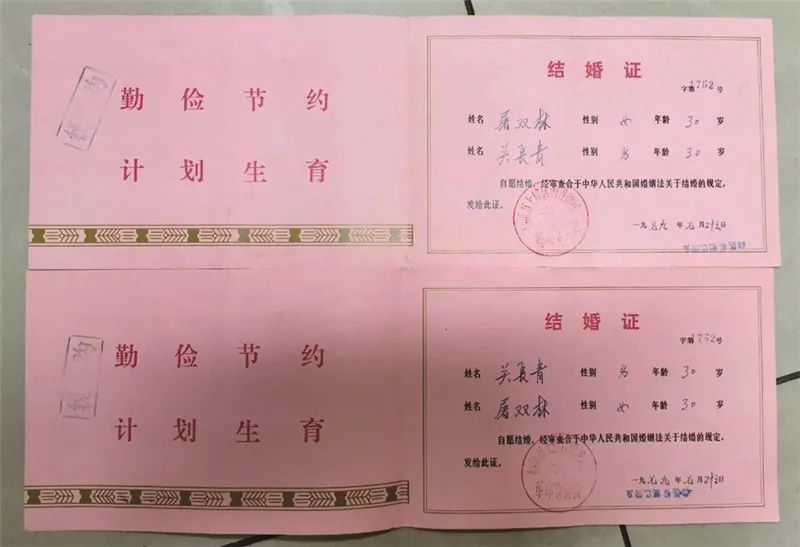 勤俭节约
计划生育
结婚证
字第1762号
姓名 屠双林 性别 女 年龄 30 岁
姓名 关長青 性别 男 年龄 30 岁
自愿结婚,经审查合于中华人民共和国婚姻法关于结婚的规定,
发给此证。
一九七九年七月 日
勤俭节约
计划生育
结婚证
字第1762号
姓名 关長青 性别 男 年龄 30 岁
姓名 屠双林 性别 女 年龄 30 岁
自愿结婚,经审查合于中华人民共和国婚姻法关于结婚的规定,
发给此证。
一九七九年七月 日